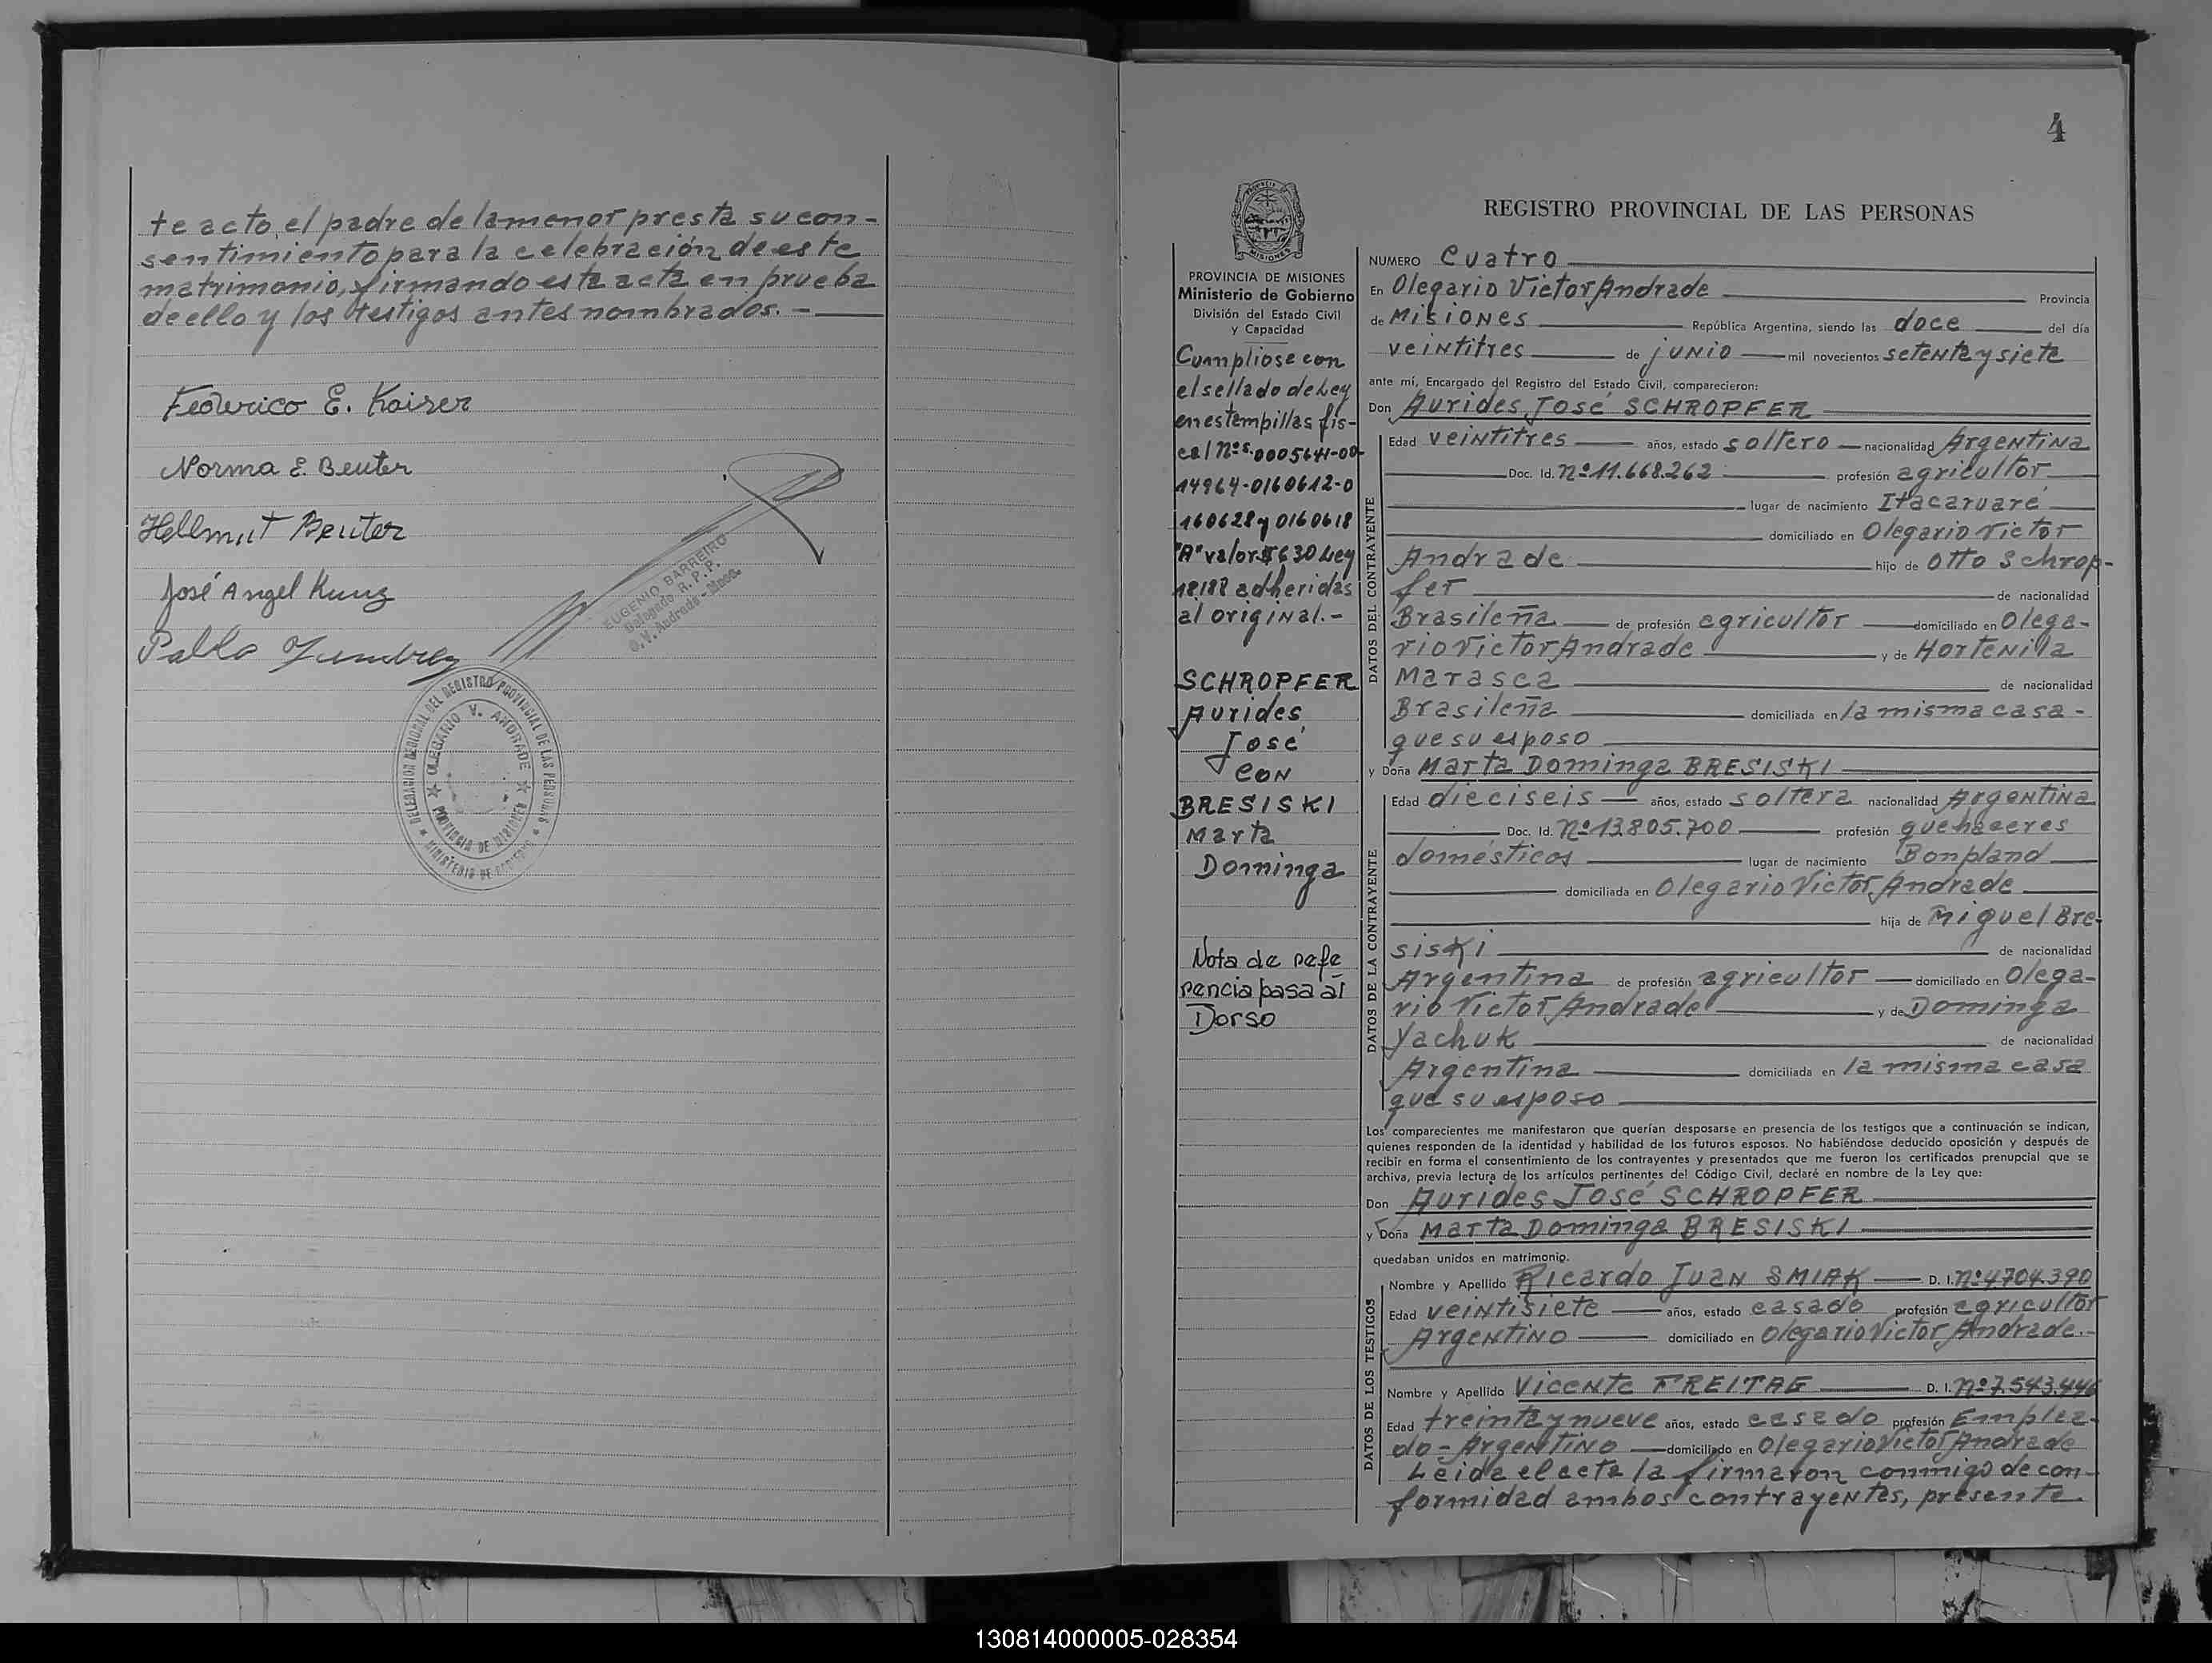 te acto, el padre de la menor presta su con-
sentimiento para la celebración de este
matrimonio, firmando esta acta en prueba
de ello y los testigos antes nombrados. -
Federico E. Kaiser
Norma E. Beuter
Hellmut Beuter
José Angel Kunz
Pablo
EUGENIO BARREIRO
Delegado R. P. P.
O. V. Andrade - Mnes.
DELEGACION REGIONAL DEL REGISTRO PROVINCIAL DE LAS PERSONAS
MINISTERIO DE GOBIERNO
OLEGARIO V. ANDRADE
PROVINCIA DE MISIONES
4
PROVINCIA DE MISIONES
Ministerio de Gobierno
División del Estado Civil
y Capacidad
Cumpliose con
el sellado de Ley
en estampillas fis-
cal Nºs. 0005641-00-
14964-0160612-0
160628 y 0160618
"A" valor $630 Ley
18188 adheridas
al original.-
SCHROPFER
Aurides
José
CON
BRESISKI
Marta
Dominga
Nota de refe
rencia pasa al
Dorso
REGISTRO PROVINCIAL DE LAS PERSONAS
NUMERO Cuatro
En Olegario Victor Andrade Provincia
de Misiones República Argentina, siendo las doce del día
veintitres de junio mil novecientos setenta y siete
ante mí, Encargado del Registro del Estado Civil, comparecieron:
Don Aurides José SCHROPFER
DATOS DEL CONTRAYENTE
Edad veintitres años, estado soltero nacionalidad Argentina
Doc. Id. Nº 11.668.262 profesión agricultor
lugar de nacimiento Itacaruaré
domiciliado en Olegario Victor
Andrade hijo de Otto Schrop-
fer de nacionalidad
Brasileña de profesión agricultor domiciliado en Olega-
rio Victor Andrade y de Hortenila
Marasca de nacionalidad
Brasileña domiciliada en la misma casa -
que su esposo
y Doña Marta Dominga BRESISKI
DATOS DE LA CONTRAYENTE
Edad dieciseis años, estado soltera nacionalidad Argentina
Doc. Id. Nº 13.805.700 profesión quehaceres
domésticos lugar de nacimiento Bonpland
domiciliada en Olegario Victor Andrade
hija de Miguel Bre-
siski de nacionalidad
Argentina de profesión agricultor domiciliado en Olega-
rio Victor Andrade y de Dominga
Yachuk de nacionalidad
Argentina domiciliada en la misma casa
que su esposo
Los comparecientes me manifestaron que querían desposarse en presencia de los testigos que a continuación se indican,
quienes responden de la identidad y habilidad de los futuros esposos. No habiéndose deducido oposición y después de
recibir en forma el consentimiento de los contrayentes y presentados que me fueron los certificados prenupcial que se
archiva, previa lectura de los artículos pertinentes del Código Civil, declaré en nombre de la Ley que:
Don Aurides José SCHROPFER
y Doña Marta Dominga BRESISKI
quedaban unidos en matrimonio.
DATOS DE LOS TESTIGOS
Nombre y Apellido Ricardo Juan SMIAK D. I. Nº 4.704.390
Edad veintisiete años, estado casado profesión agricultor
Argentino domiciliado en Olegario Victor Andrade.-
Nombre y Apellido Vicente FREITAG D. I. Nº 7.543.446
Edad treinta y nueve años, estado casado profesión Emplea-
do - Argentino domiciliado en Olegario Victor Andrade
Leida el acta la firmaron conmigo de con-
formidad ambos contrayentes, presente
130814000005-028354